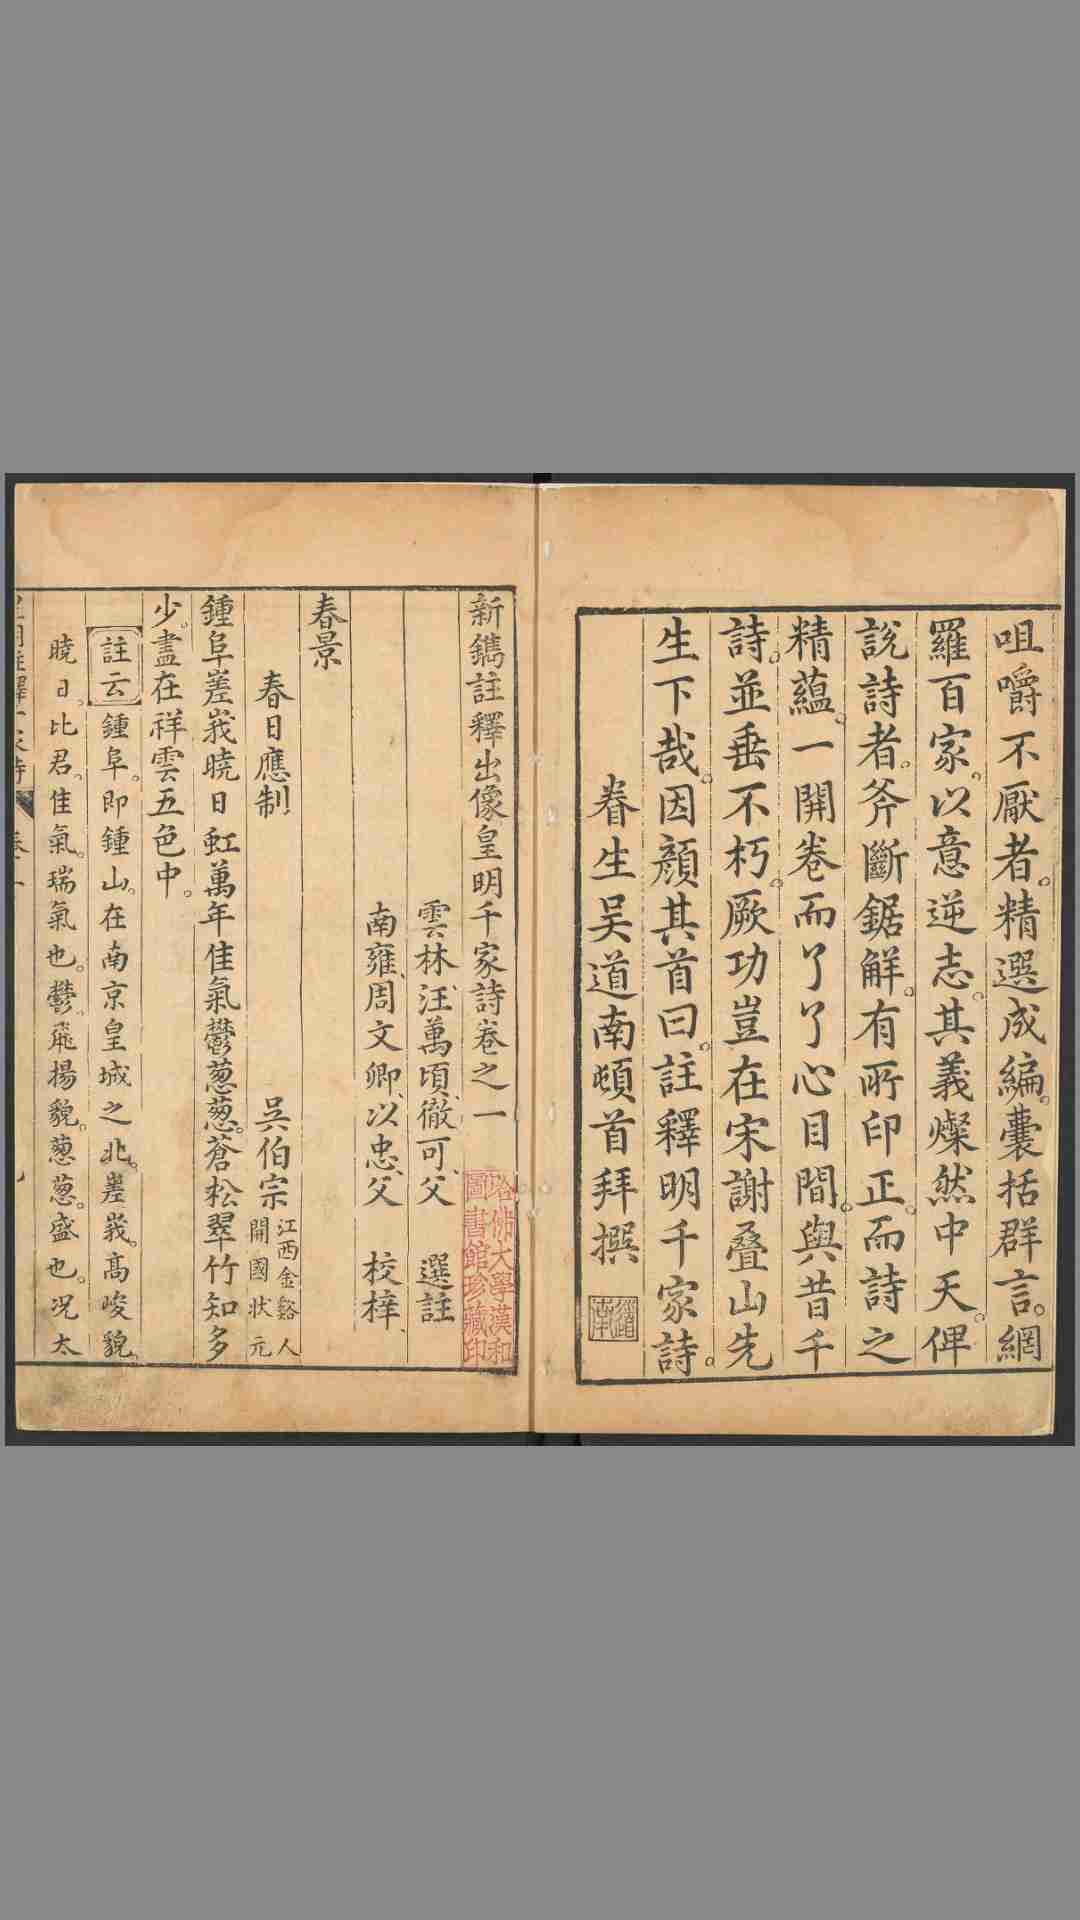 咀嚼不厭者。精選成編。囊括群言。網
羅百家。以意逆志。其義燦然中天。俾
說詩者。斧斷鋸解。有所印正。而詩之
精蘊。一開卷而了了心目間。與昔千
詩。並垂不朽。厥功豈在宋謝叠山先
生下哉。因顏其首曰。註釋明千家詩。
眷生吴道南頓首拜撰
道南
新鐫註釋出像皇明千家詩卷之一
雲林、汪萬頃、徹可、父 選註
南雍、周文卿、以忠、父 校梓
哈佛大學漢和
圖書館珍藏印
春景
春日應制
吳伯宗
江西金谿人
開國狀元
鍾阜嵳峩曉日虹萬年佳氣鬱葱葱。蒼松翠竹知多
少。盡在祥雲五色中。
註云 鍾阜。即鍾山。在南京皇城之北。嵳峩。高峻貌。
曉日。比君。佳氣。瑞氣也。鬱。飛揚貌。葱葱。盛也。况太